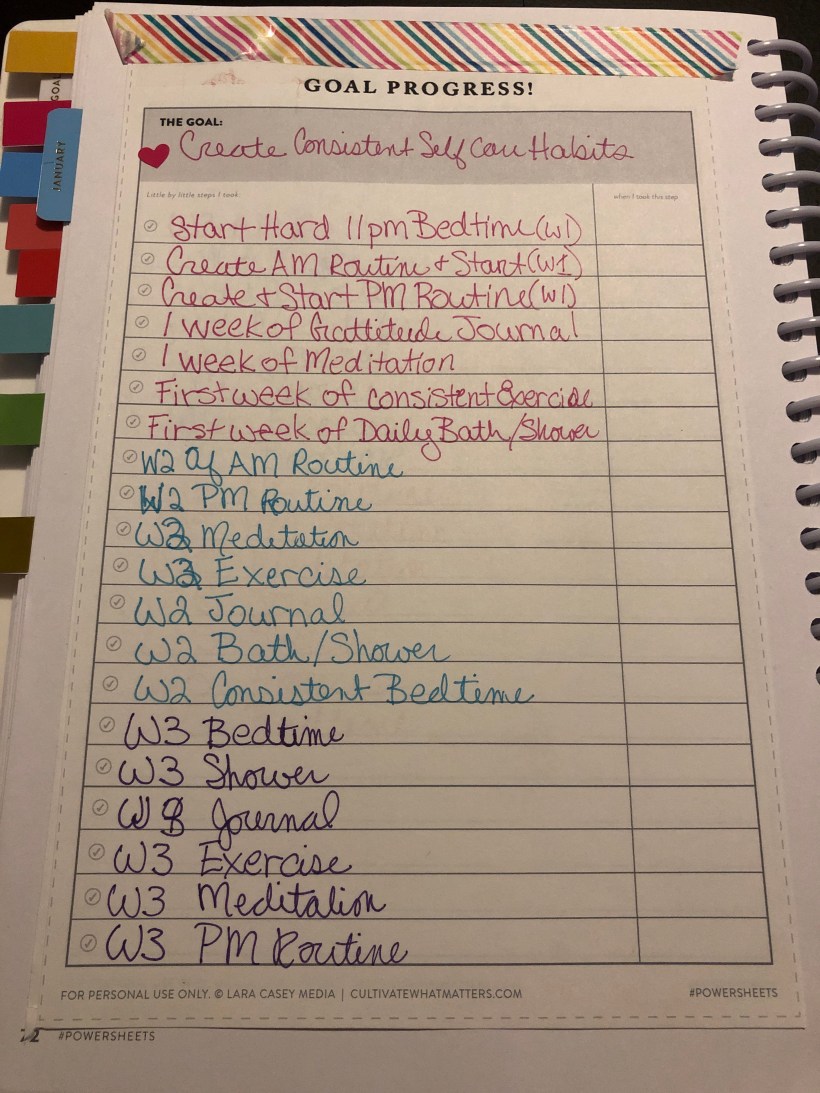 GOAL PROGRESS!
THE GOAL:
Create Consistent Self Care Habits
Little by little steps I took: when I took this step
Start Hard 11pm Bedtime (W1)
Create AM Routine + Start (W1)
Create + Start PM Routine (W1)
1 week of Grattitude Journal
1 week of Meditation
First week of consistent Exercise
First week of Daily Bath/Shower
W2 Of AM Routine
W2 PM Routine
W2 Meditation
W2 Exercise
W2 Journal
W2 Bath/Shower
W2 Consistent Bedtime
W3 Bedtime
W3 Shower
W3 Journal
W3 Exercise
W3 Meditation
W3 PM Routine
FOR PERSONAL USE ONLY. © LARA CASEY MEDIA | CULTIVATEWHATMATTERS.COM #POWERSHEETS
#POWERSHEETS
GOA
JANUARY